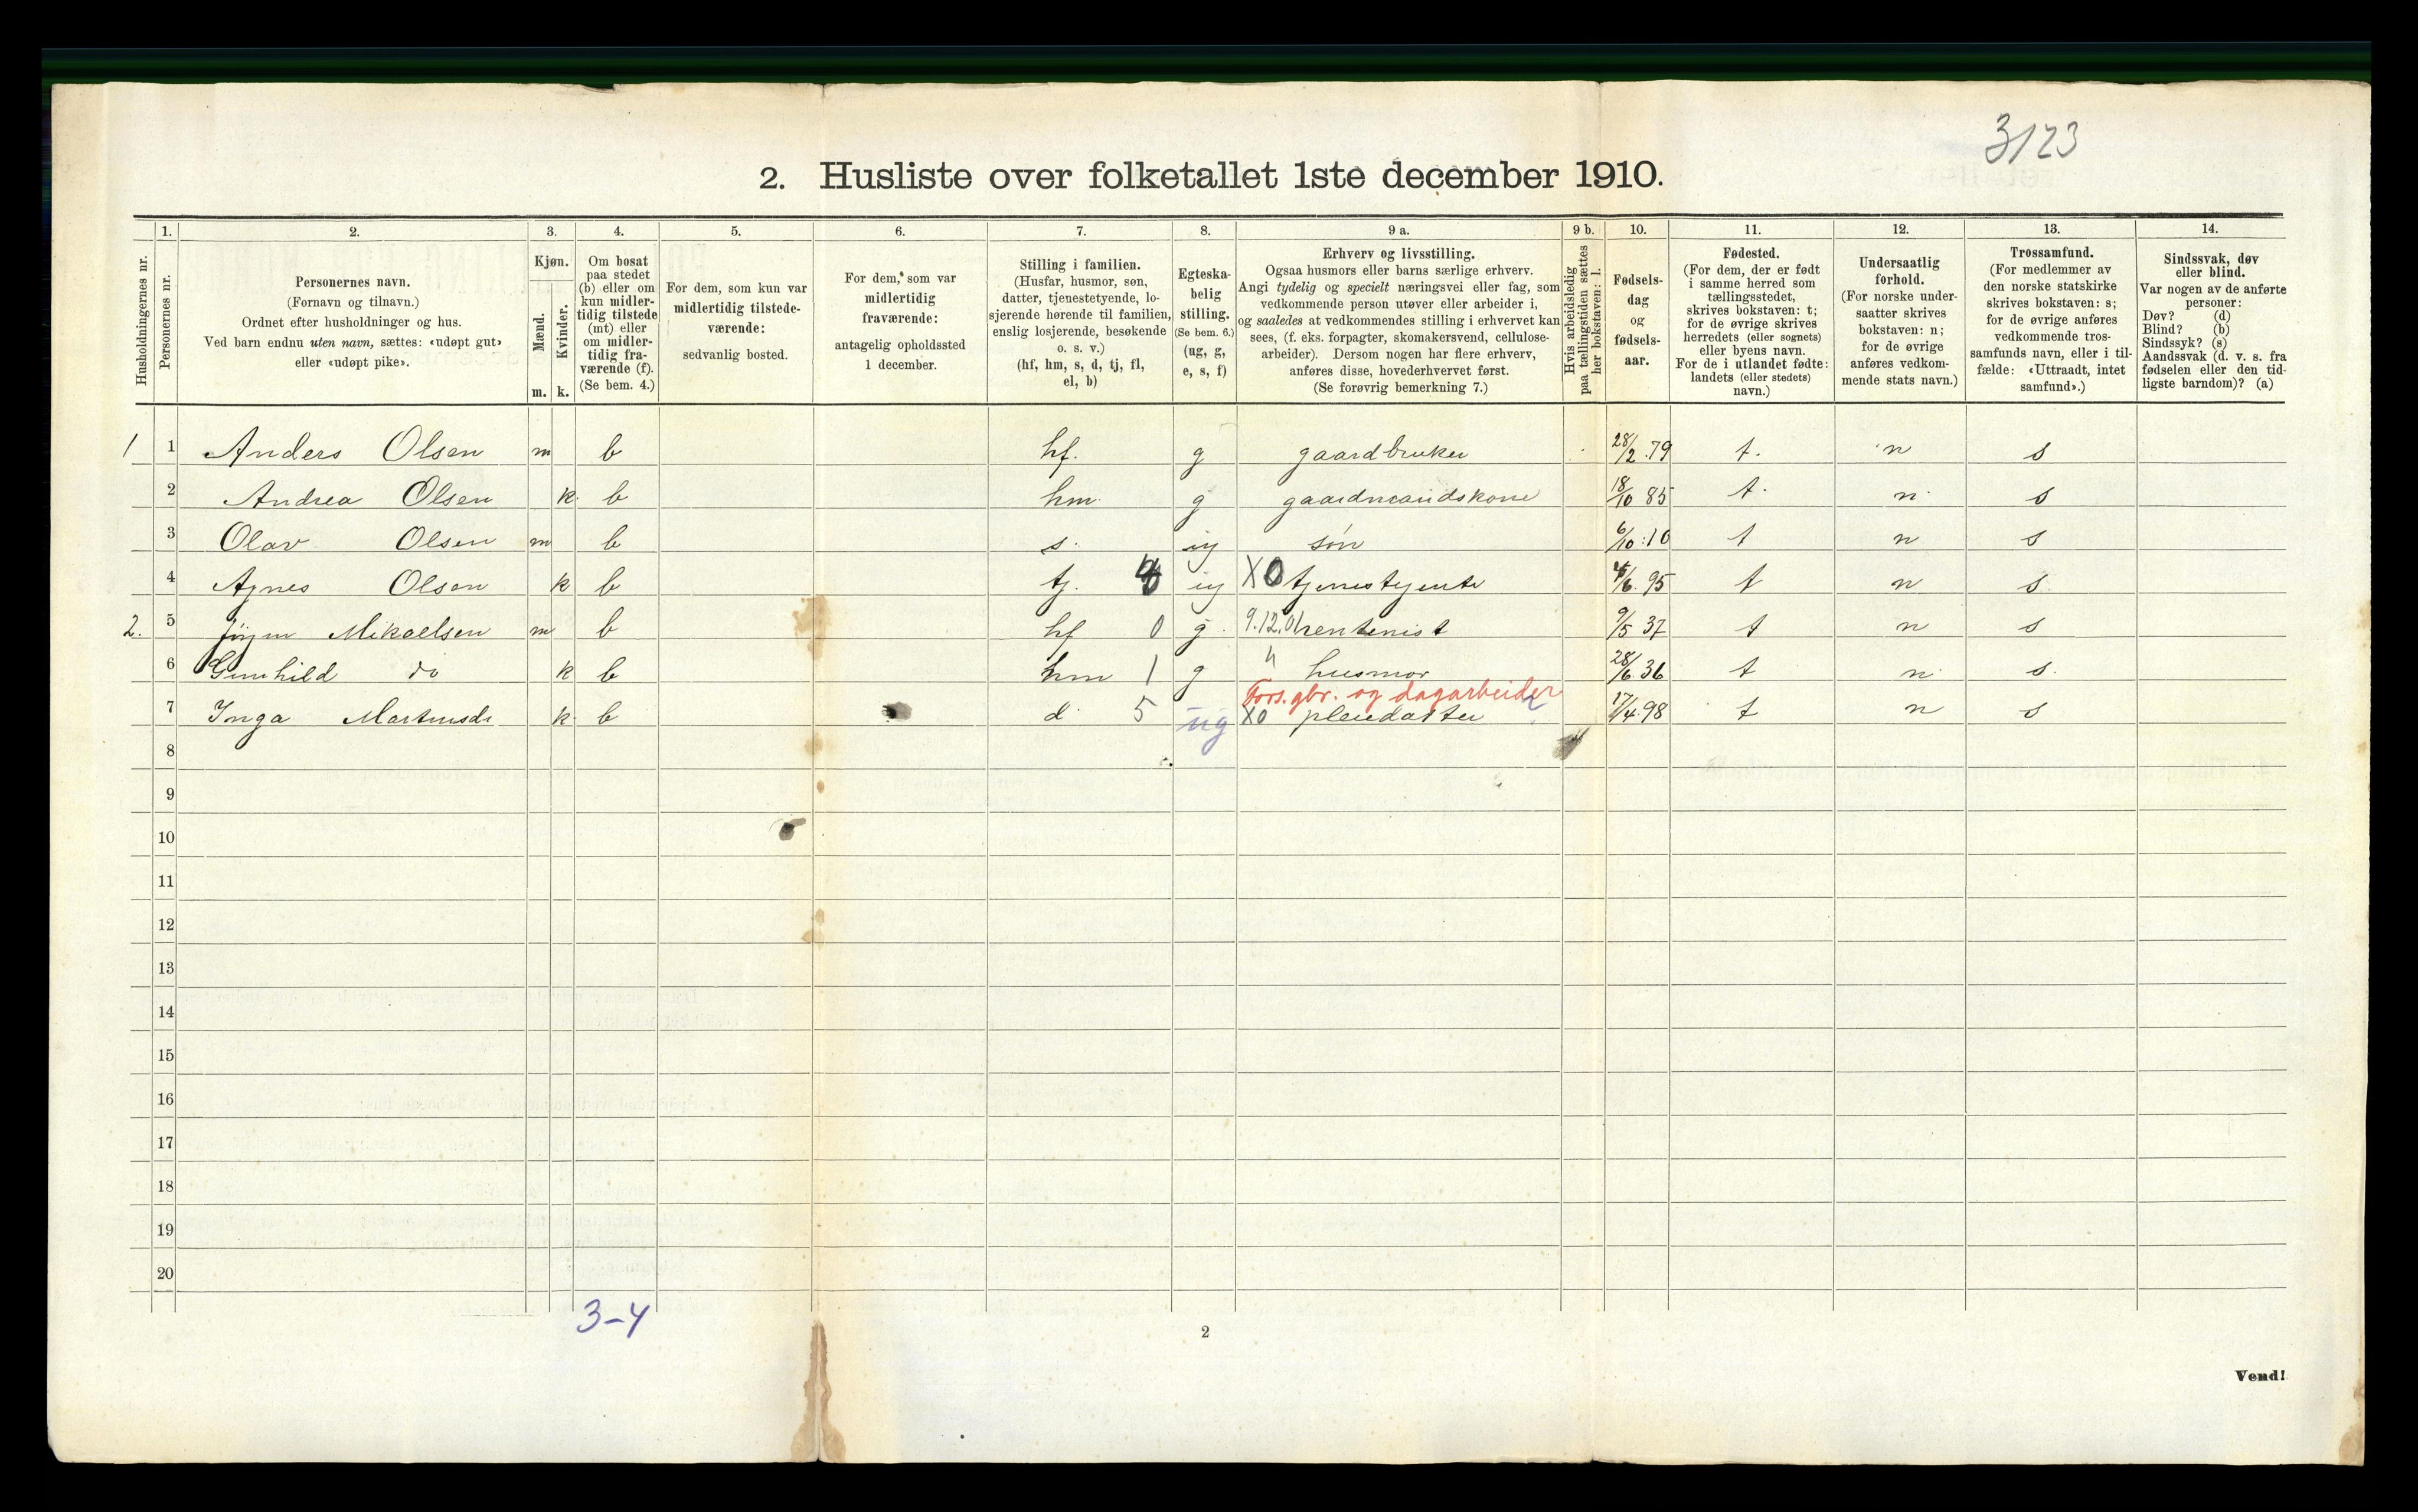 3123
2. Husliste over folketallet 1ste december 1910.
Husholdningernes nr.
1.
Personernes nr.
2.
Personernes navn.
(Fornavn og tilnavn.)
Ordnet efter husholdninger og hus.
Ved barn endnu uten navn, sættes: «udøpt gut»
eller «udøpt pike».
3.
Kjøn.
Mænd.
Kvinder.
m. k.
4.
Om bosat
paa stedet
(b) eller om
kun midler-
tidig tilstede
(mt) eller
om midler-
tidig fra-
værende (f).
(Se bem. 4.)
5.
For dem, som kun var
midlertidig tilstede-
værende:
sedvanlig bosted.
6.
For dem, som var
midlertidig
fraværende:
antagelig opholdssted
1 december.
7.
Stilling i familien.
(Husfar, husmor, søn,
datter, tjenestetyende, lo-
sjerende hørende til familien,
enslig losjerende, besøkende
o. s. v.)
(hf, hm, s, d, tj, fl,
el, b)
8.
Egteska-
belig
stilling.
(Se bem. 6.)
(ug, g,
e, s, f)
9 a.
Erhverv og livsstilling.
Ogsaa husmors eller barns særlige erhverv.
Angi tydelig og specielt næringsvei eller fag, som
vedkommende person utøver eller arbeider i,
og saaledes at vedkommendes stilling i erhvervet kan
sees, (f. eks. forpagter, skomakersvend, cellulose-
arbeider). Dersom nogen har flere erhverv,
anføres disse, hovederhvervet først.
(Se forøvrig bemerkning 7.)
9 b.
Hvis arbeidsledig
paa tællingstiden sættes
her bokstaven: l.
10.
Fødsels-
dag
og
fødsels-
aar.
11.
Fødested.
(For dem, der er født
i samme herred som
tællingsstedet,
skrives bokstaven: t;
for de øvrige skrives
herredets (eller sognets)
eller byens navn.
For de i utlandet fødte:
landets (eller stedets)
navn.)
12.
Undersaatlig
forhold.
(For norske under-
saatter skrives
bokstaven: n;
for de øvrige
anføres vedkom-
mende stats navn.)
13.
Trossamfund.
(For medlemmer av
den norske statskirke
skrives bokstaven: s;
for de øvrige anføres
vedkommende tros-
samfunds navn, eller i til-
fælde: «Uttraadt, intet
samfund».)
14.
Sindssvak, døv
eller blind.
Var nogen av de anførte
personer:
Døv? (d)
Blind? (b)
Sindssyk? (s)
Aandssvak (d. v. s. fra
fødselen eller den tid-
ligste barndom)? (a)
1 1 Anders Olsen m b hf. g gaardbruker 28/2 79 t. n s
2 Andrea Olsen k. b hm g gaardmandskone 18/10 85 t. n. s
3 Olav Olsen m b s. ug søn 6/10 10 t n s
4 Agnes Olsen k b tj. ug X0 tjenestejente 95 t n s
2. 5 Mikaelsen m b hf 0 g. 9.12.01 rentenist 9/5 37 t n s
6 Gunhild do k b hm 1 g " husmor 28/6 36 t n. s.
Fors. gbr. og dagarbeider
7 Inga Martinsdr k. b d 5 ug X0 pleiedatter 17/4 98 t n s
8
9
10
11
12
13
14
15
16
17
18
19
20
3-4
2
Vend!